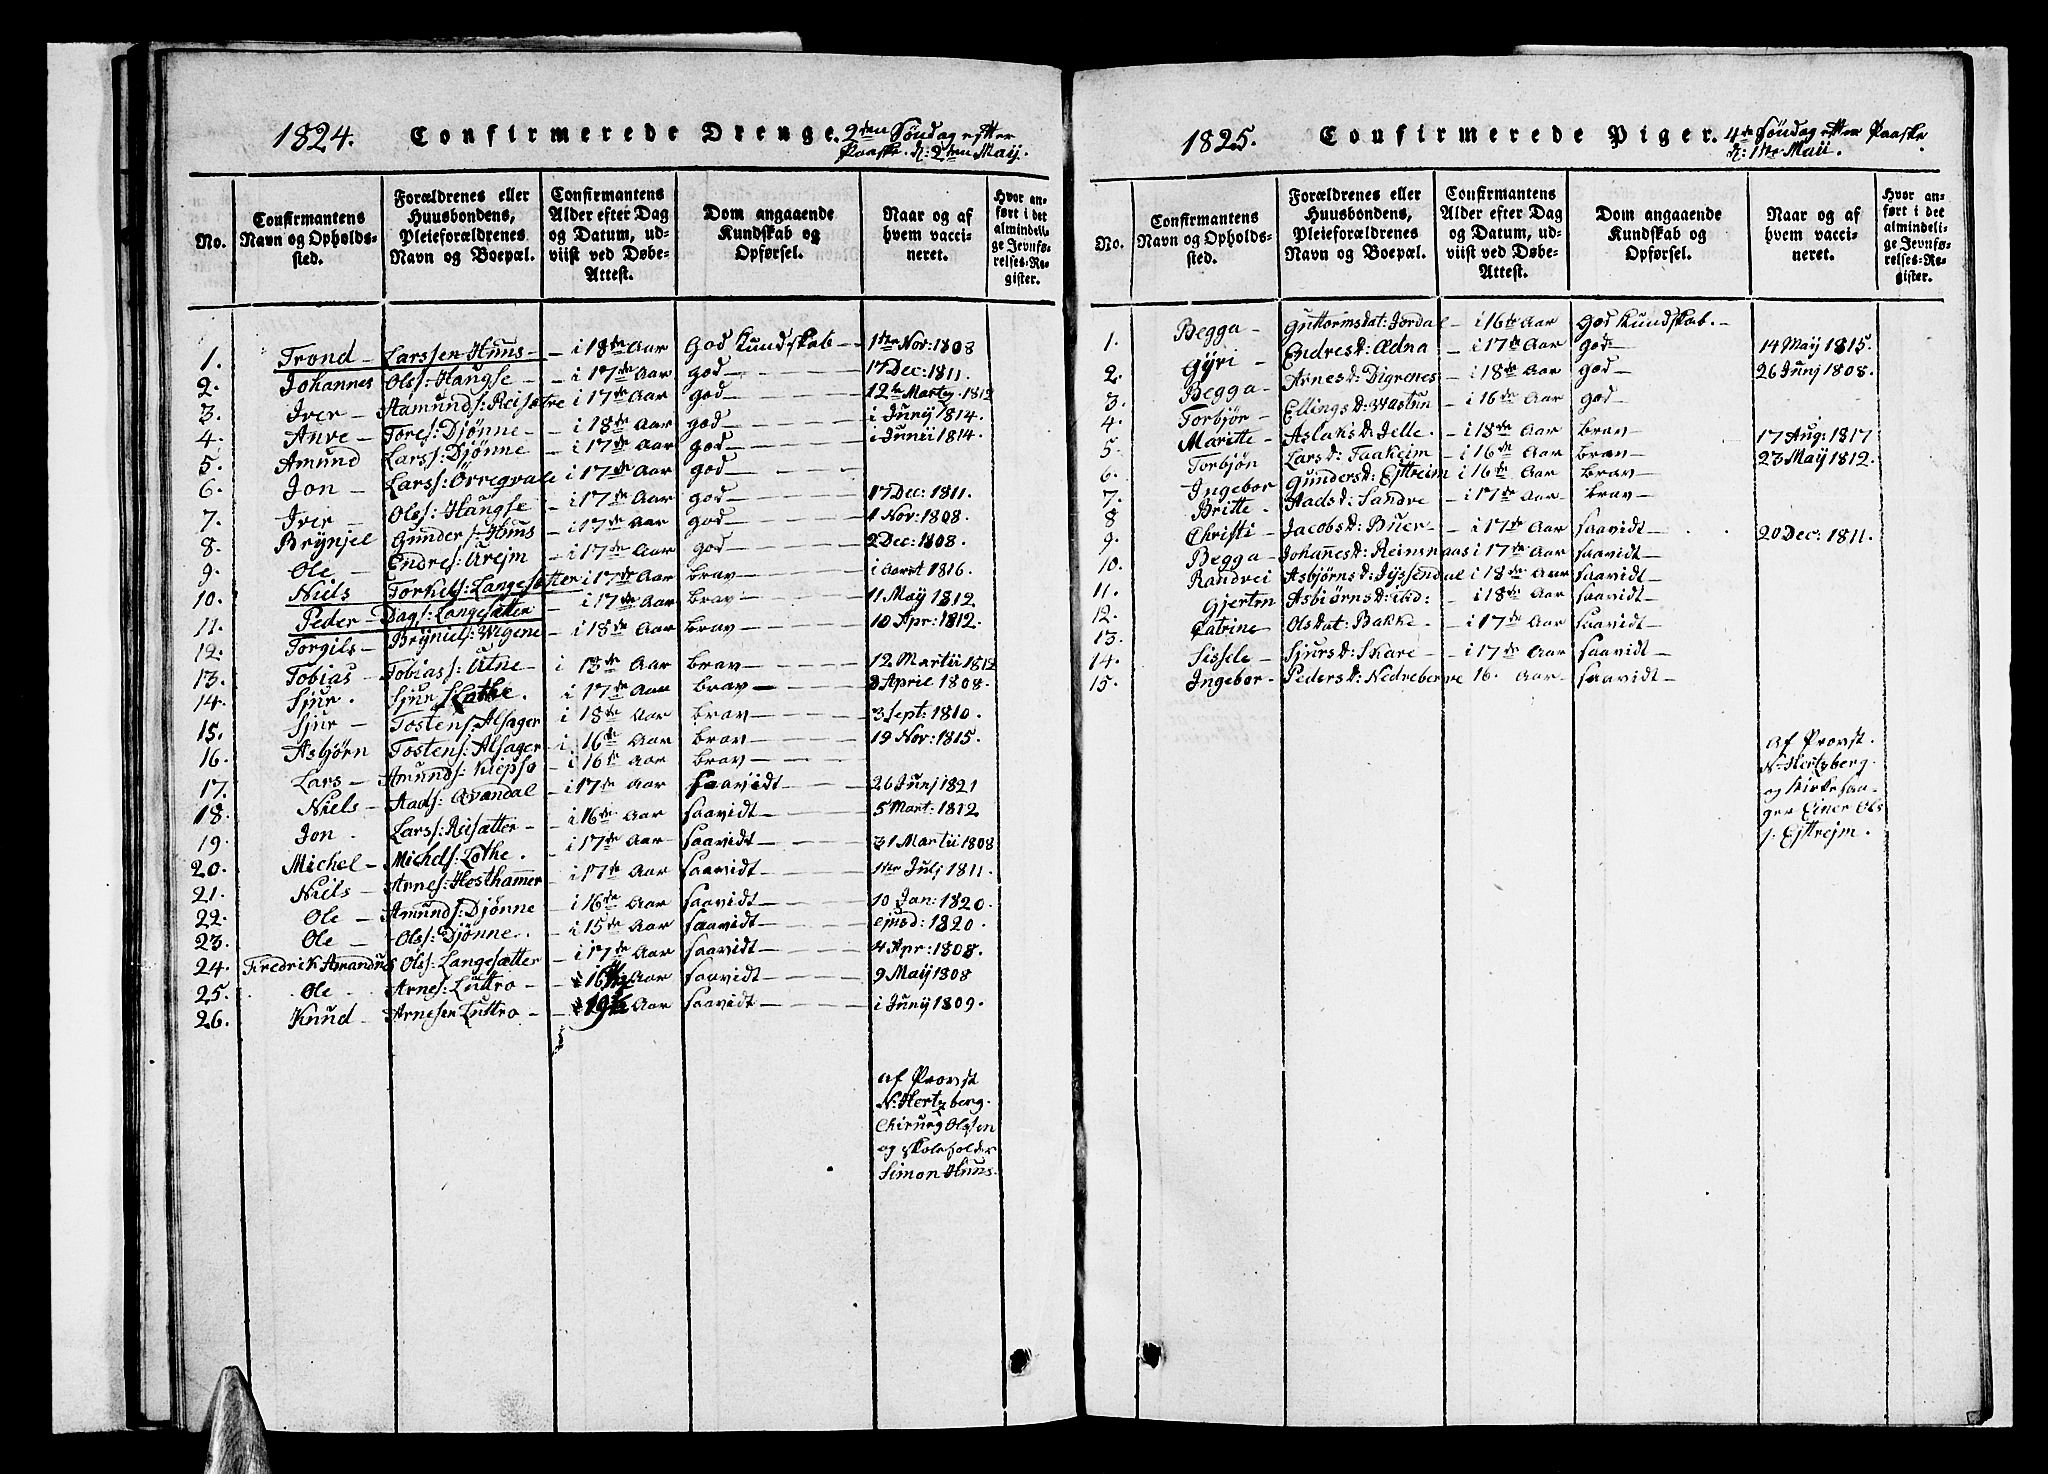 1824. Confirmerede Drenge. 2den Søndag efter
Paaske. d: 2den Maÿ.
No.
Confirmantens Navn og Opholdssted.
Forældrenes eller Huusbondens, Pleieforældrenes Navn og Boepæl.
Confirmantens Alder efter Dag og Datum, udviist ved Døbe-Attest.
Dom angaaende Kundskab og Opførsel.
Naar og af hvem vaccineret.
Hvor anført i det almindelige Jevnførelses-Register.
1. Trond - Larssen Huus - i 18de Aar God Kundskab - 1ste Nov: 1808
2. Johannes Olss: Haugse - i 17de Aar god - 17 Dec: 1811.
3. Iver - Aamunds: Reisætre i 17de Aar god - 12te Martÿ 1812
4. Anve - Tores: Djønne - i 18de Aar god - i Junÿ 1814.
5. Amund Larss: Djønne - i 17de Aar god - i Junii 1814.
6. Jon - Larss: Ørregvale i 17de Aar god -
7. Iver - Olss: Haugse - i 17de Aar god - 17 Dec: 1811.
8. Brÿnjel Gunders: Huus - i 17de Aar god - 1 Nov: 1808.
9. Ole - Endres: Urejm - i 17de Aar god - 2 Dec: 1808.
10. Niels Torkels: Langesætter i 17de Aar brav - i Aaret 1816.
11. Peder - Dags: Langesætter - i 17de Aar brav - 11 Maÿ 1812.
12. Torgils - Brÿniels: Wigene - i 18de Aar brav - 10 Apr: 1812.
13. Tobias - Tobiass: Utne - i 18de Aar brav - 12 Martii 1812
14. Sjur. Sjurs: Lothe. i 17de Aar brav - 8 April 1808.
15. Sjur - Tostens: Alsager i 18de Aar brav - 3 Sept: 1810.
16. Asbjørn Tostens: Alsager - i 16de Aar brav - 19 Nov: 1815.
17. Lars - Amunds: Kiepso - i 16de Aar brav -
18. Niels - Aads: Qvandal - i 17de Aar saavidt - 26 Junj 1821
19. Jon. Larss: Reisætter - i 16de Aar saavidt - 5 Mart: 1812
20. Michel - Michels: Lothe. - i 17de Aar saavidt - 31 Martii 1808
21. Niels - Arnes: Hesthamer - i 17de Aar saavidt - 1ste Julj 1811.
22. Ole - Amunds: Djønne - i 16de Aar saavidt - 10 Jan: 1820.
23. Ole - Olss: Djønne. - i 15de Aar saavidt - ejusd: 1820.
24. Fredrik Amandus Olss: Langesætter - i 17de Aar saavidt - 4 Apr: 1808.
25. Ole - Arnes: Luttro - Aar saavidt - 9 Maÿ 1808
26. Knud - Arnesen Luttro - Aar saavidt - i Junÿ 1809.
af Provst
N: Hertzberg.
Chirurg Olsen
og skoleholder
Simon Huus.
1825. Confirmerede Piger. 4de Søndag efter Paaske.
d: 1ste Maii.
No.
Confirmantens Navn og Opholdssted.
Forældrenes eller Huusbondens, Pleieforældrenes Navn og Boepæl.
Confirmantens Alder efter Dag og Datum, udviist ved Døbe-Attest.
Dom angaaende Kundskab og Opførsel.
Naar og af hvem vaccineret.
Hvor anført i det almindelige Jevnførelses-Register.
1. Begga - Guttormsdat: Jordal - i 16de Aar God Kundskab. -
2. Gÿri - Endresd: Ædna - i 17de Aar god - 14 Maÿ 1815.
3. Begga - Arnesd: Digrenes - i 18de Aar god - 26 Junj 1808.
4. Torbjør - Ellingsd: Wastun - i 16de Aar god -
5. Maritte - Aslaksd: Jelle. - i 18de Aar brav - 17 Aug: 1817
6. Torbjøn Larsd: Aakeim - i 16de Aar brav - 23 Maÿ 1812.
7. Ingebor Gundersd: Ejttreim i 16de Aar brav -
8 Britte - Aadsd: Sandre - i 17de Aar brav -
9. Christi - Jacobsd: Buer - i 17de Aar saavidt - 20 Dec: 1811.
10. Begga - Johanesd: Reimnaas i 17de Aar saavidt -
11. Randvei Asbjørnsd: Jÿssendal i 18de Aar saavidt -
12. Gjerten Asbiørnsd: ibd: - i 18de Aar saavidt -
13. Catrine Olsdat: Bakke - i 17de Aar saavidt -
14. Sissele - Sjursd: Skare - i 17de Aar saavidt -
15. Ingebor - Pedersd: Nedreberve 16. Aar - saavidt -
af Provst.
N: Hertzberg.
og Kirkesan-
ger Einer Ols
s: Ejttrejm.